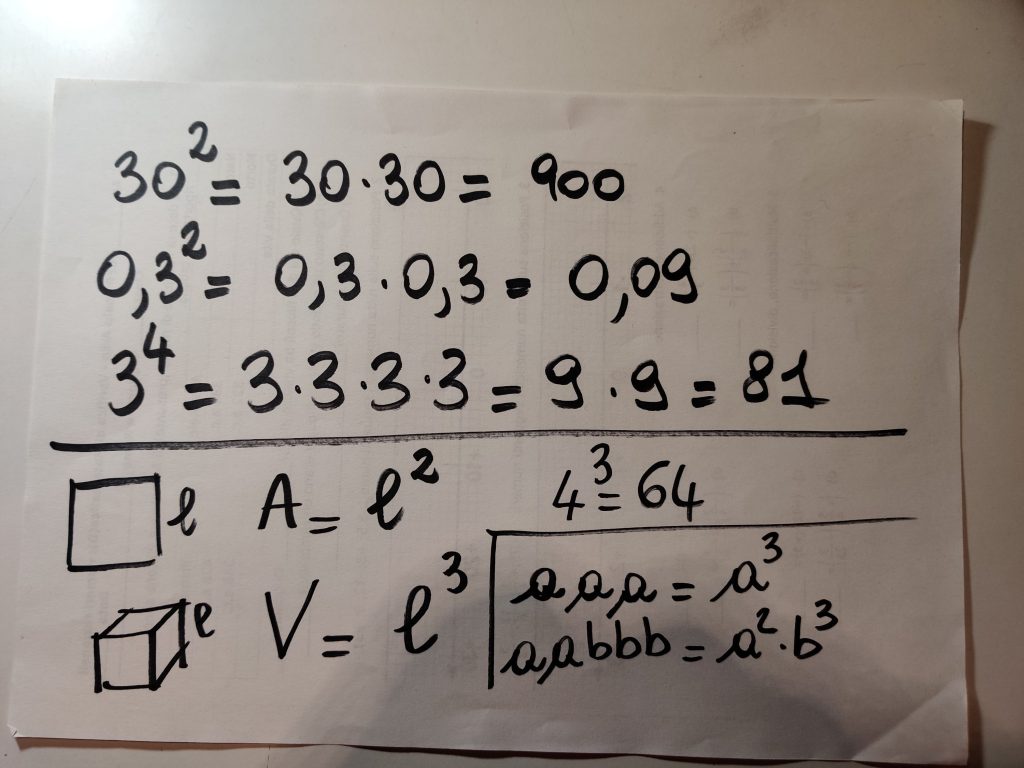 30² = 30·30 = 900
0,3² = 0,3·0,3 = 0,09
3⁴ = 3·3·3·3 = 9·9 = 81
l A = l² 4³ = 64
a a a = a³
l V = l³
a a b b b = a²·b³